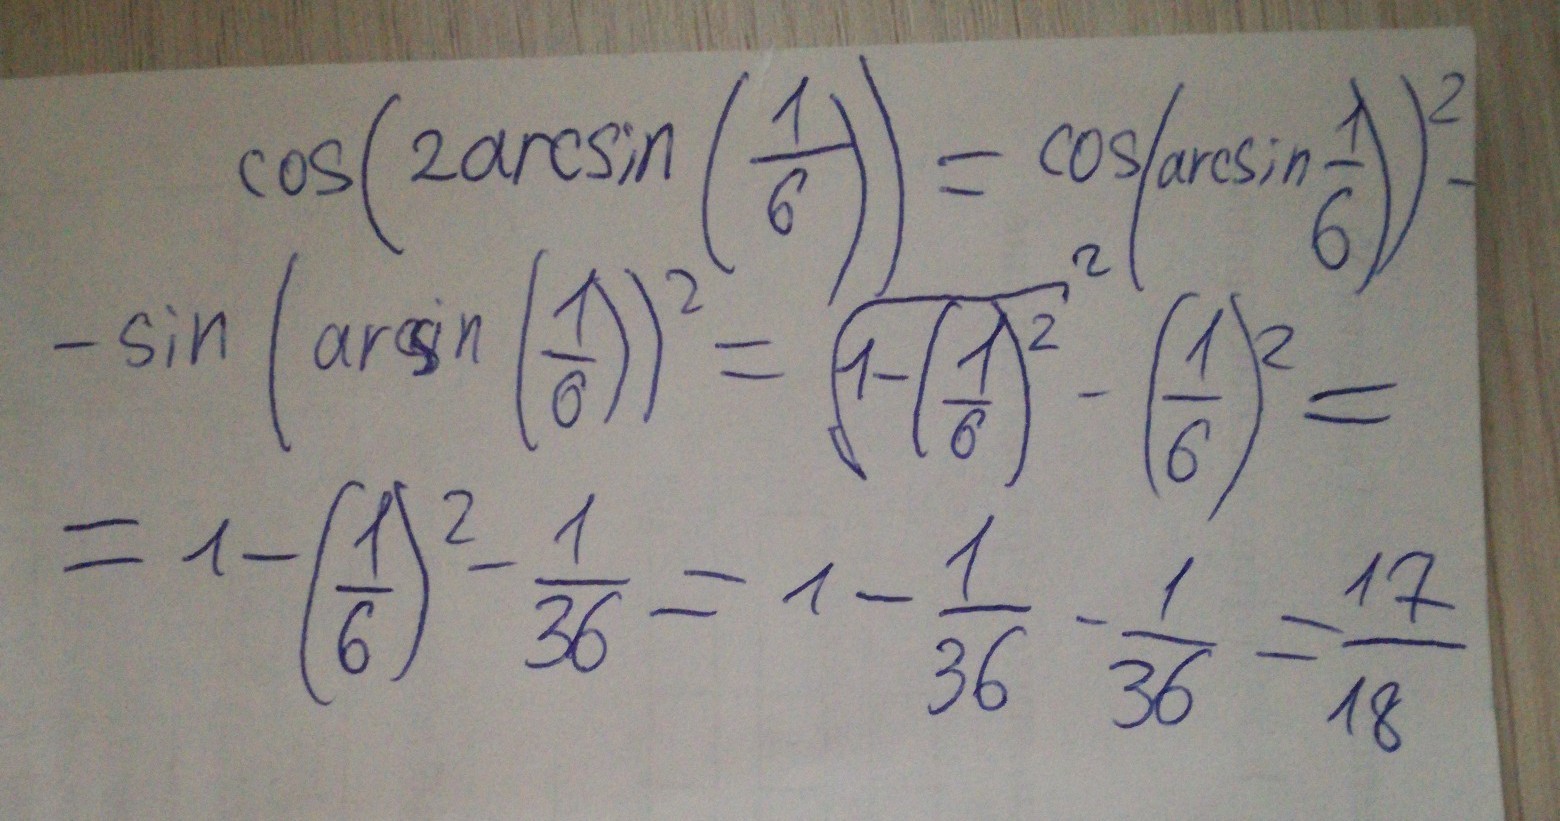 cos(2arcsin(1/6)) = cos(arcsin 1/6)² -
- sin(arcsin(1/6))² = √(1-(1/6)²)² - (1/6)² =
= 1 - (1/6)² - 1/36 = 1 - 1/36 - 1/36 = 17/18